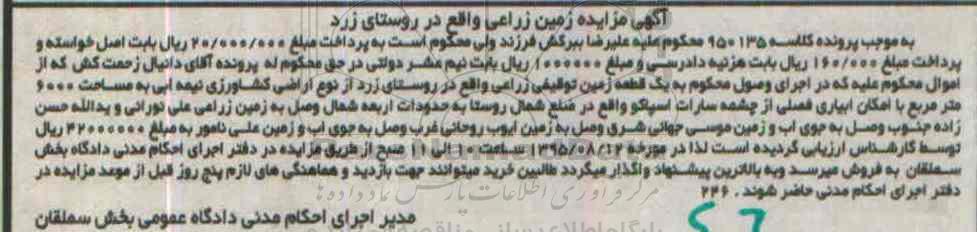 آگهی مزایده زمین زراعی واقع در روستای زرد
به موجب پرونده کلاسه ۹۵۰۱۳۵ محکوم علیه علیرضا ببرکش فرزند ولی محکوم است به پرداخت مبلغ ۲۰/۰۰۰/۰۰۰ ریال بابت اصل خواسته و
پرداخت مبلغ ۱۶۰/۰۰۰ ریال بابت هزینه دادرسی و مبلغ ۱۰۰۰۰۰۰ ریال بابت نیم عشر دولتی در حق محکوم له پرونده آقای دانیال زحمت کش که از
اموال محکوم علیه که در اجرای وصول محکوم به یک قطعه زمین توقیفی زراعی واقع در روستای زرد از نوع اراضی کشاورزی نیمه ابی به مساحت ۶۰۰۰
متر مربع با امکان ابیاری فصلی از چشمه سارات اسپاکو واقع در ضلع شمال روستا به حدودات اربعه شمال وصل به زمین زراعی علی نورانی و یدالله حسن
زاده جنوب وصل به جوی اب و زمین موسی جهانی شرق وصل به زمین ایوب روحانی غرب وصل به جوی اب و زمین علی نامور به مبلغ ۴۲۰۰۰۰۰۰ ریال
توسط کارشناس ارزیابی گردیده است لذا در مورخه ۱۳۹۵/۰۸/۱۲ ساعت ۱۰ الی ۱۱ صبح از طریق مزایده در دفتر اجرای احکام مدنی دادگاه بخش
سملقان به فروش میرسد وبه بالاترین پیشنهاد واگذار میگردد طالبین خرید میتوانند جهت بازدید و هماهنگی های لازم پنج روز قبل از موعد مزایده در
دفتر اجرای احکام مدنی حاضر شوند . ۲۴۶
مرکز فرآوری اطلاعات پارس ماد داده ها
مدیر اجرای احکام مدنی دادگاه عمومی بخش سملقان
پایگاه اطلاع رسانی مناقصه